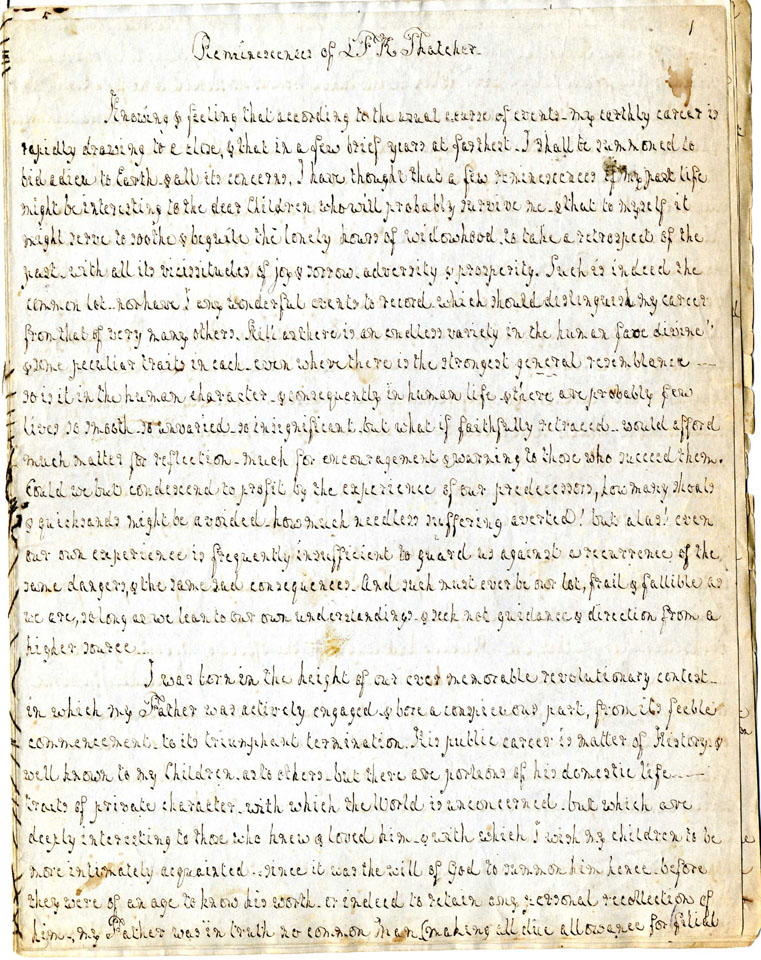 1
Reminescenses of L F K Thatcher.
Knowing & feeling that according to the usual course of events my earthly career is
rapidly drawing to a close, & that in a few brief years at farthest I shall be summoned to
bid adieu to Earth & all its concerns, I have thought that a few reminescences of my past life
might be interesting to the dear Children who will probably survive me & that to myself it
might serve to soothe & beguile the lonely hours of widowhood to take a retrospect of the
past with all its vicissitudes of joy & sorrow, adversity & prosperity. Such is indeed the
common lot nor have I any wonderful events to record which should distinguish my career
from that of very many others. Still as there is an endless variety in the human face divine"
& some peculiar traits in each even where there is the strongest general resemblance
so is it in the human character & consequently in human life & there are probably few
lives so smooth so unvaried so insignificant but what if faithfully retraced would afford
much matter for reflection much for encouragement & warning to those who succeed them.
Could we but condescend to profit by the experience of our predecessors, how many shoals
& quicksands might be avoided how much needless suffering averted! but alas! even
our own experience is frequently insufficient to guard us against a recurrence of the
same dangers, & the same sad consequences. And such must ever be our lot, frail & fallible as
we are, so long as we lean to our own understandings & seek not guidance & direction from a
higher source
I was born in the height of our ever memorable revolutionary contest
in which my Father was actively engaged & bore a conspicuous part, from its feeble
commencement to its triumphant termination. His public career is matter of History &
well known to my Children as to others but there are portions of his domestic life
traits of private character with which the World is unconcerned but which are
deeply interesting to those who knew & loved him & with which I wish my children to be
more intimately acquainted since it was the will of God to summon him hence before
they were of an age to know his worth or indeed to retain any personal recollection of
him. my Father was in truth no common Man (making all due allowance for filial